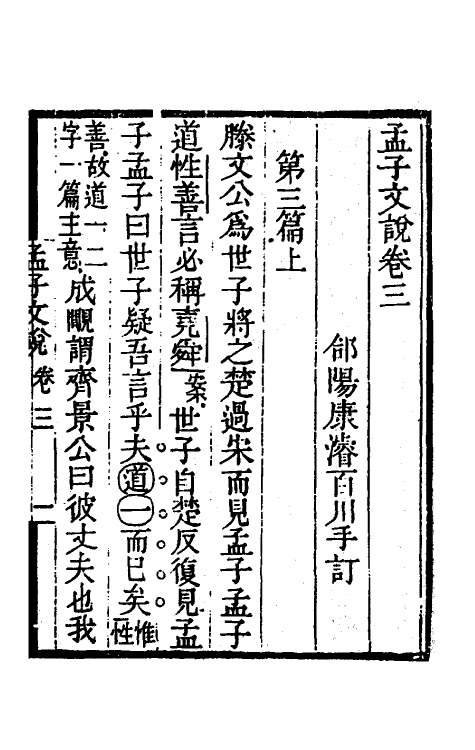 孟子文說卷三
郃陽康濬百川手訂
第三篇上
滕文公爲世子將之楚過宋而見孟子孟子
道性善言必稱堯舜一案世子自楚反復見孟
子孟子曰世子疑吾言乎夫道一而已矣惟性
善故道一二字一篇主意成覵謂齊景公曰彼丈夫也我
孟子文說 卷三 一